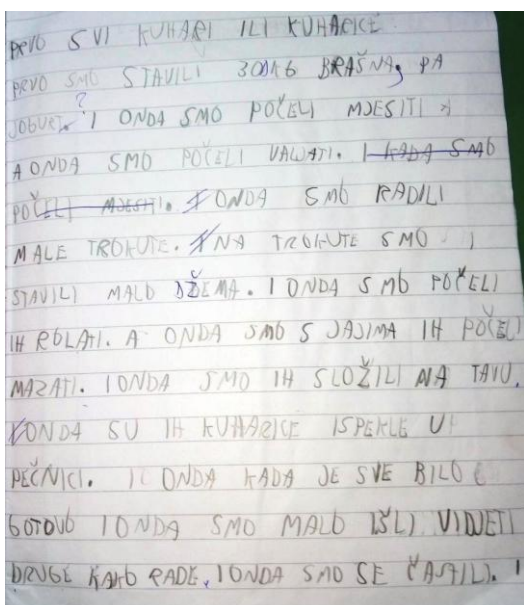 PRVO SVI KUHARI ILI KUHARICE
PRVO SMO STAVILI BRAŠNA, PA
?
JOGURT. I ONDA SMO POČELI MJESITI
A ONDA SMO POČELI VALJATI. I KADA SMO
POČELI MJESITI. I ONDA SMO RADILI
MALE TROKUTE. I NA TROKUTE SMO
STAVILI MALO DŽEMA. I ONDA SMO POČELI
IH ROLATI. A ONDA SMO S JAJIMA IH POČELI
MAZATI. I ONDA SMO IH SLOŽILI NA TAVU.
I ONDA SU IH KUHARICE ISPEKLE U
PEČNICI. I ONDA KADA JE SVE BILO
GOTOVO I ONDA SMO MALO IŠLI VIDJETI
DRUGE KAKO RADE, I ONDA SMO SE ČASTILI. I